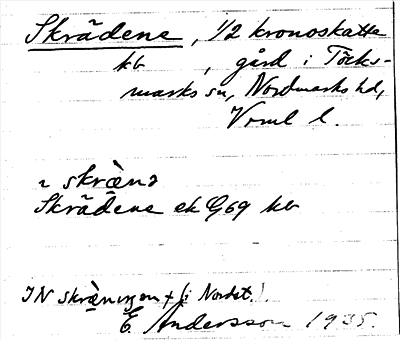 Skrädene, 1/2 kronoskatte
kb, gård i Töcks-
marks sn, Nordmarks hd,
Vrml l.
~ skræ̀nə
Skrädene ek G69 kb
IN skræ̀nıŋən + (i Nordst.).
E. Andersson 1935.